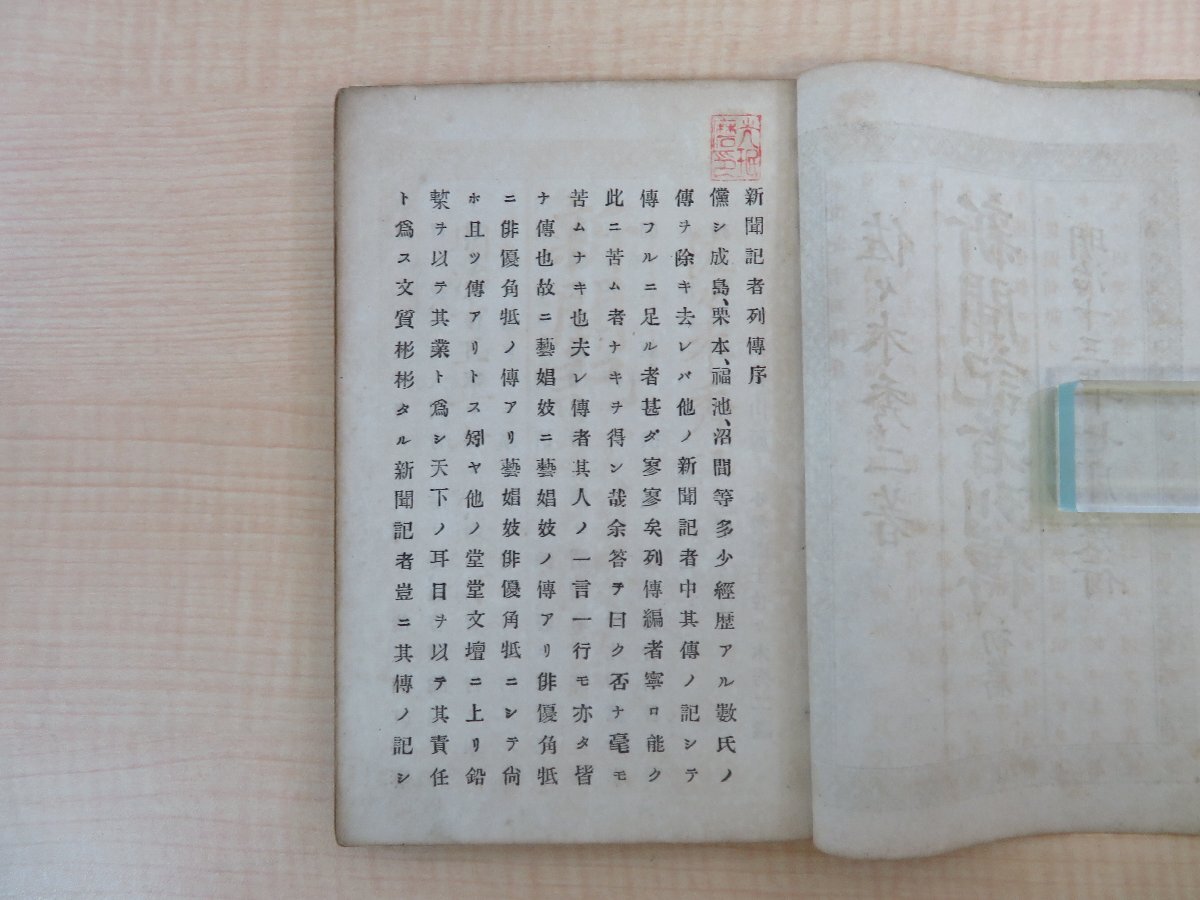 新聞記者列傳序
儻シ成島、栗本、福池、沼間等多少經歴アル數氏ノ
傳ヲ除キ去レバ他ノ新聞記者中其傳ノ記シテ
傳フルニ足ル者甚ダ寥寥矣列傳編者寧ロ能ク
此ニ苦ム者ナキヲ得ン哉余答テ曰ク否ナ毫モ
苦ムナキ也夫レ傳者其人ノ一言一行モ亦タ皆
ナ傳也故ニ藝娼妓ニ藝娼妓ノ傳アリ俳優角牴
ニ俳優角牴ノ傳アリ藝娼妓俳優角牴ニシテ尙
ホ且ツ傳アリトス矧ヤ他ノ堂堂文壇ニ上リ鉛
槧ヲ以テ其業ト爲シ天下ノ耳目ヲ以テ其責任
ト爲ス文質彬彬タル新聞記者豈ニ其傳ノ記シ